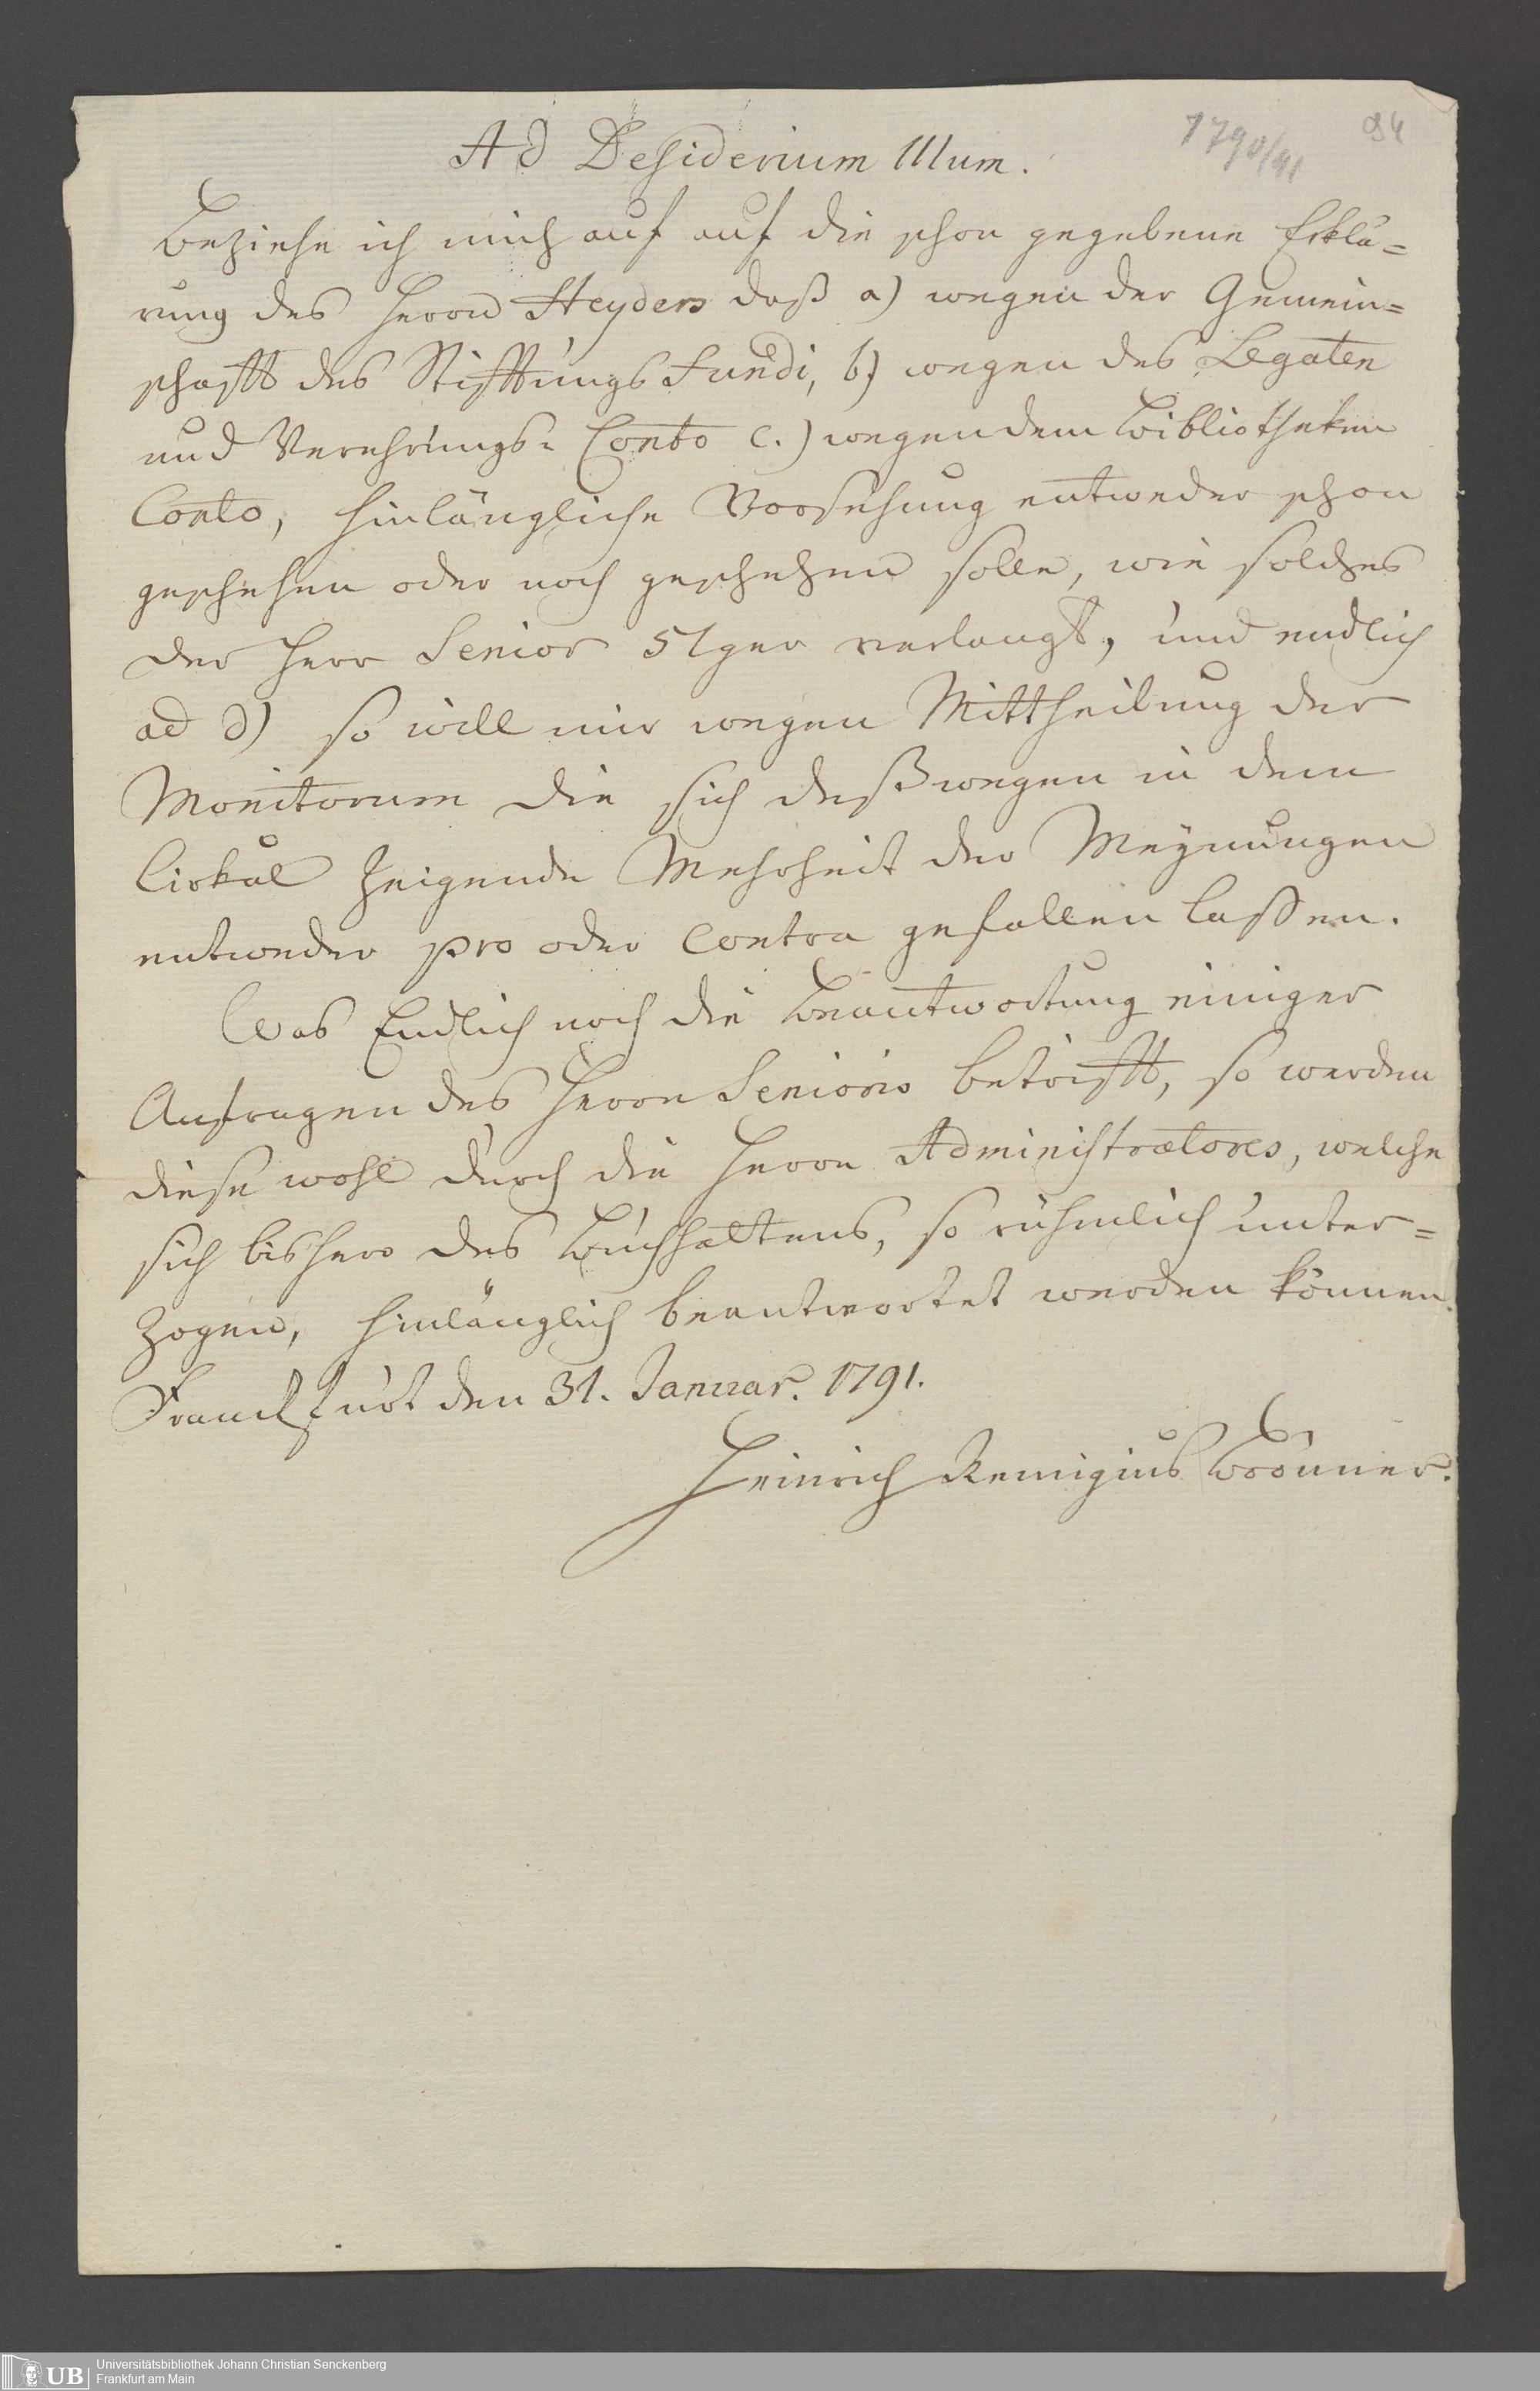 1790/91
94
Ad Desiderium IIIum.
Beziehe ich mich auf auf die schon gegebene Erklä=
rung des Herrn Heyders daß a) wegen der Gemein=
schafft des Stifftungs Fundi, b) wegen des Legaten
und Verehrungs= Conto c.) wegen dem Bibliotheken
Conto, hinlängliche Vorsehung entweder schon
geschehen oder noch geschehen solle, wie solches
der Herr Senior verlangt, und endlich
ad d) so will mir wegen Mittheilung der
Monitorum die sich deßwegen in dem
Cirkul zeigende Mehrheit der Meynungen
entweder pro oder Contra gefallen lassen.
Was Endlich noch die Beantwortung einiger
Anfragen des Herrn Senioris betrifft, so werden
diese wohl durch die Herrn Administratores, welche
sich bishero des Buchhaltens, so rühmlich unter=
zogen, hinlänglich beantwortet werden können.
Franckfurt den 31. Januar. 1791.
Heinrich Remigius Brönner.
UB
Universitätsbibliothek Johann Christian Senckenberg
Frankfurt am Main